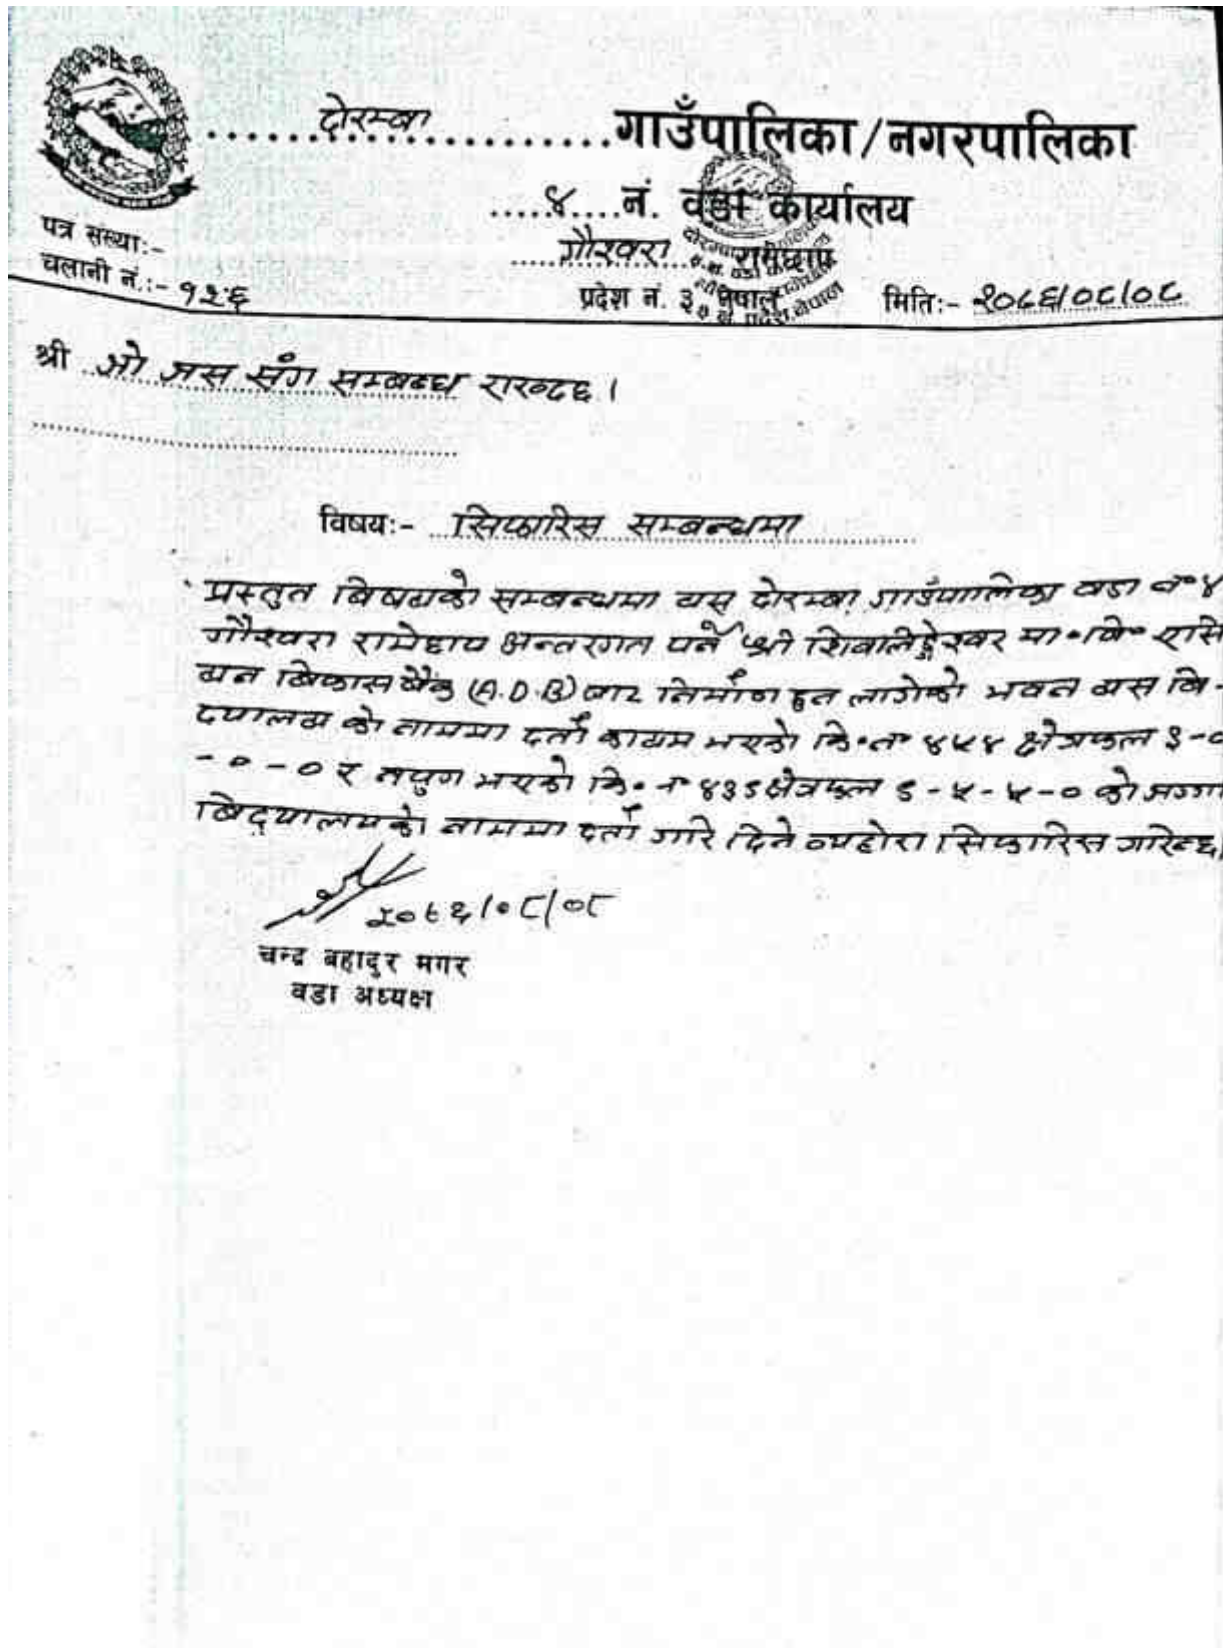 दोरम्बा गाउँपालिका/नगरपालिका
४ नं. वडा कार्यालय
गौश्वरा रामेछाप
प्रदेश नं. ३ नेपाल
पत्र संख्या:-
चलानी नं.:- १२६
मिति:- २०७६/०८/०८
श्री जो जस संग सम्बन्ध राख्दछ।
विषय:- सिफारिस सम्बन्धमा
प्रस्तुत बिषयको सम्बन्धमा यस दोरम्बा गाउँपालिका वडा नं ४
गौश्वरा रामेछाप अन्तरगत पर्ने श्री मा॰वि॰ एसि
यन बिकास बैंक (A.D.B) बाट निर्माण हुन लागेको भवन यस बि-
द्यालय को नाममा दर्ता कायम भएको कि॰नं ४५४ क्षेत्रफल ३-०
-०-० र नपुग भएको कि॰नं ४३८ क्षेत्रफल ६-५-५-० को जग्गा
बिद्यालयको नाममा दर्ता गरि दिने व्यहोरा सिफारिस गरिन्छ।
२०७६/०८/०८
चन्द्र बहादुर मगर
वडा अध्यक्ष